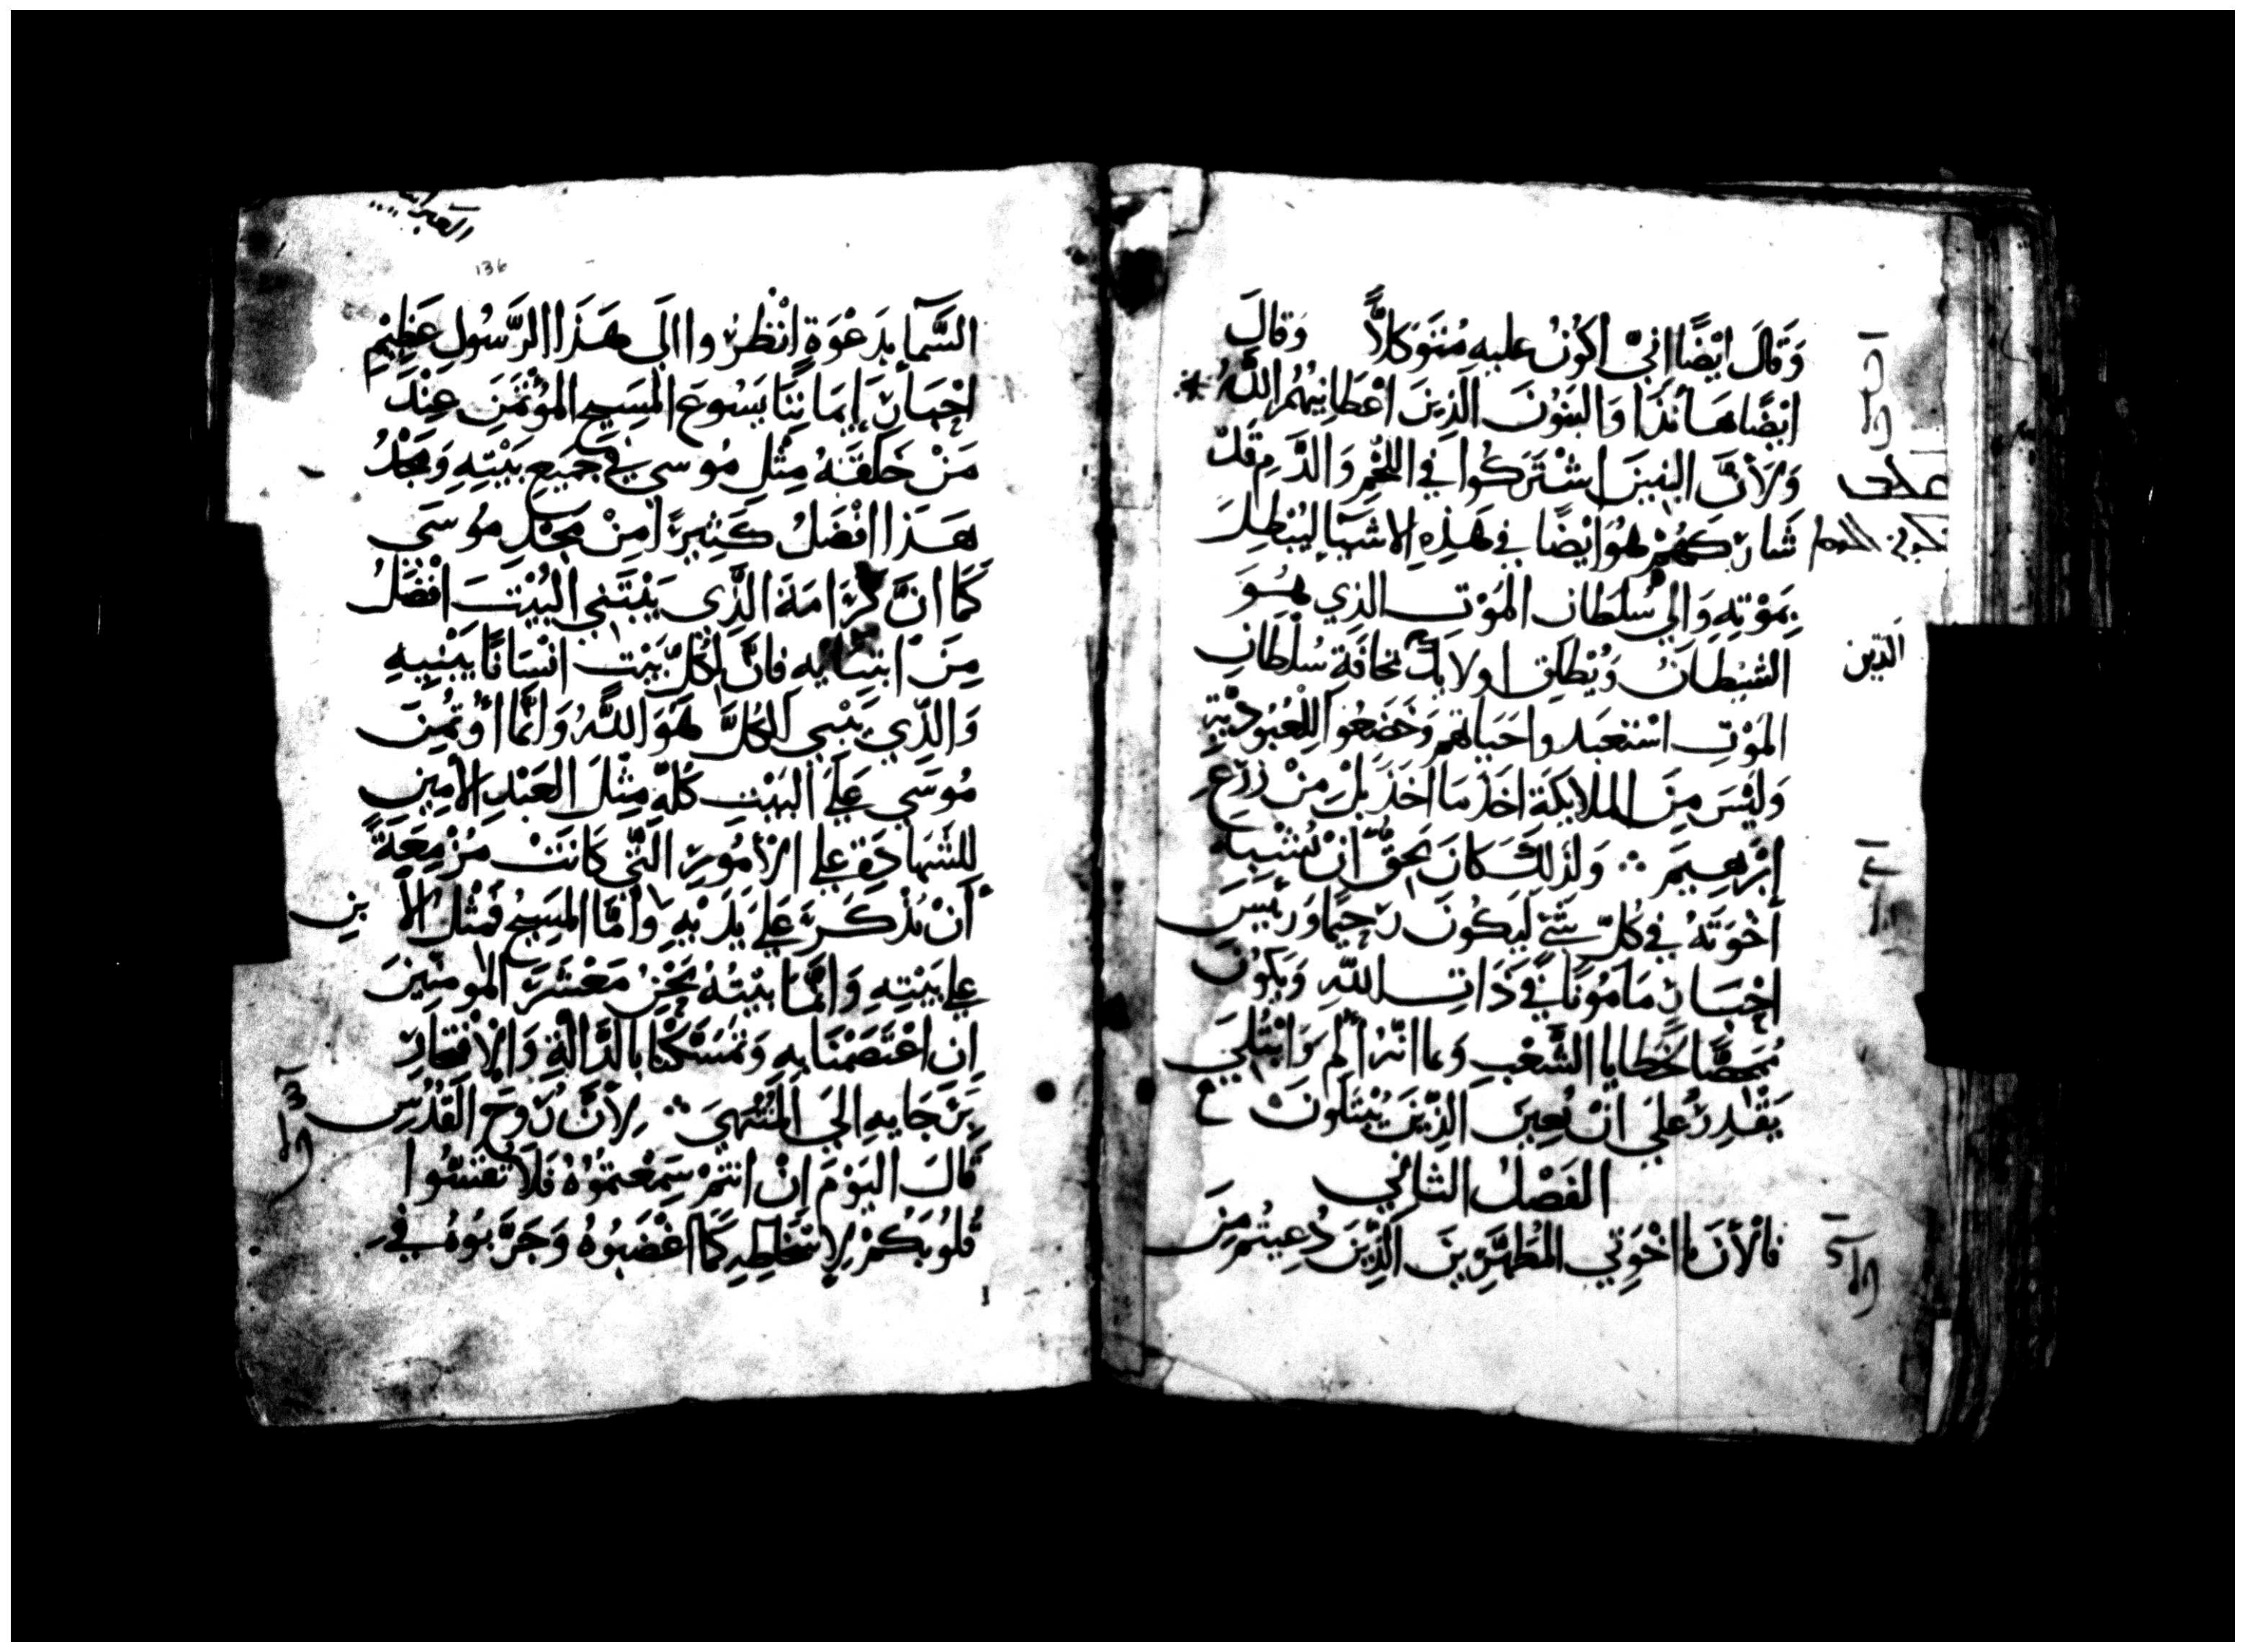 وَقَالَ ايْضًا انِيْ اكُونُ عليهِ مُتَوَكلاً وَقَالَ
ايْضًا هَأنَذَا وَالبَنوُنَ الَّذِينَ اعْطَانِيهُمُ اللَّهُ
وَلأنَّ البَنِينَ اشْتَرَكُوا فِي اللحْمِ وَالدَّمِ قَدْ
شَارَكَهُمْ هُوَ ايْضًا فِي هَذِهِ الاشيَآ ليُبْطِلَ
بِمَوْتِهِ وَالِي سُلطَان المَوْتِ الذِي هُوَ
الشيْطَانُ وَيُطْلِقَ اولايك مخَافَةِ سُلْطَانِ
الذين
المَوْتِ اسْتعْبَدوا حَيَاتهم وَخَضَعُوا لِلْعُبُودِيَّةِ
وَليْسَ مِنَ الملايكَةِ اخَذَ مَا اخَذَ بَلْ مِنْ زَرْعِ
إبْرَهِيمَ ۞ وَلذلِكَ كَانَ يَحِقُّ انْ يُشْبِهَ
أخْوَتَهُ فِي كُلّ شَيْ ليَكُونَ رَحِيمًا وَرَئيسَ
احْبَارٍ مَامُونًا فِي ذَاتِ اللَّهِ وَيكُونُ
مُمَحِّصًا لخَطَايا الشَّعْبِ وَبما انّهُ ألِم وَابْتُلِيَ
يَقْدِرُ عَلَى انْ يُعِينَ الذِّينَ يُبْتَلُونَ
الفَصْلُ الثاَلِثُ
فَالأنَ يا اخْوَتِي المُطَهَّرِينَ الَّذِينَ دُعِيتُم مِنَ
136
السَّمآءِ بدَعْوَةٍ انْظُرُوا الَى هَذَا الرَّسُولِ عَظِيْمِ
احْبَارِ إيمَانِنَا يَسُوعَ المَسِيحِ المُؤْتَمَنِ عِنْدَ
مَنْ خَلقَهُ مِثْلِ مُوسي فِي جَمِيعِ بَيْتِهِ وَمَجْدُ
هَذَا افْضَلُ كَثِيرًا مِنْ مَجْدِ مُوسَي
كَمَا انَّ كَرَامَةَ الَّذِي يَبْتَنِي البَيْتَ افْضَلُ
مِنَ ابْتِنَايهِ فَانَّ لِكُلّ بَيْتٍ انْسَانًا يَبْنِيهِ
وَالذِّي يَبْنِي الكُلَّ هُوَ اللَّهُ وَانَّمَا اؤتُمِنَ
مُوسَي عَلَى البَيْتِ كُلّهِ مِثْلَ العَبْدِ الأمِينِ
لِلشَّهَادَةِ عَلى الأُمُورِ الَّتِي كَانَتْ مُزْمِعَةً
أنْ تُذْكَرَ عَلى يَدَيْهِ وَامَّا المَسِيحُ فَمِثْلُ الابنِ
عَلى بَيْتِهِ وَانَّمَا بَيْتُهُ نَحْنُ مَعْشَرَ المومنِينَ
إن اعْتَصَمْنَا بِهِ وَتَمَسَكْنَا بالدَّالَّةِ وَالإفْتِخارِ
بِرَجَايهِ الَي المُنْتَهَى ۞ لأنَّ رُوحَ القُدُسِ
قَالَ اليَوْمَ انْ انتمْ سَمِعْتمُوُهُ فَلَا تقسّوا
قُلُوبَكُمْ لإسْخَاطِهِ كَمَا اغضَبُوهُ وَجَرَّبُوهُ فِي